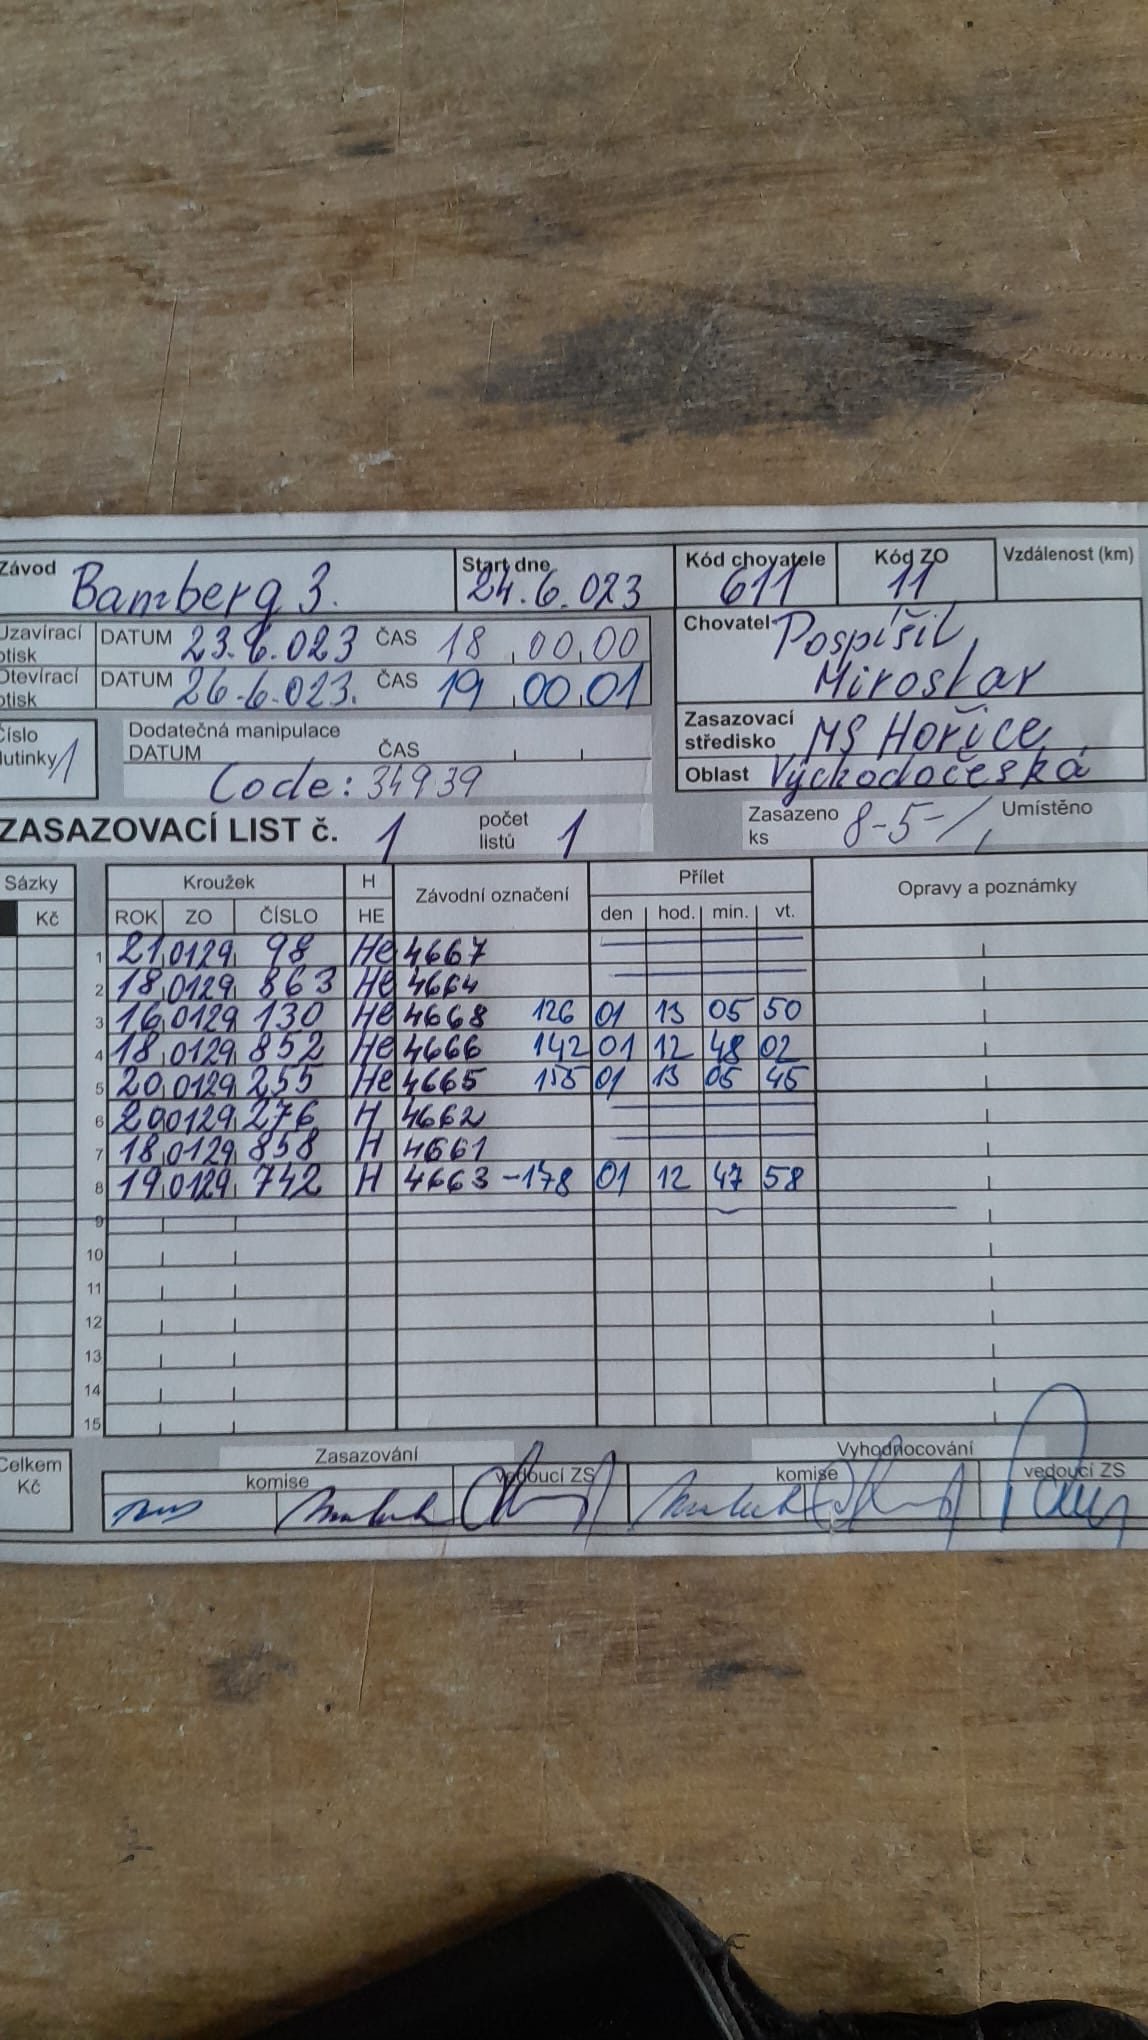 Závod Bamberg 3. Start dne 24.6.023 Kód chovatele 611 Kód ZO 11 Vzdálenost (km)
Uzavírací otisk DATUM 23.6.023 ČAS 18 00 00
Otevírací otisk DATUM 26.6.023. ČAS 19 00 01
Chovatel Pospíšil Miroslav
Číslo 1
Dodatečná manipulace
DATUM ČAS
Code: 34939
Zasazovací středisko MS Hořice
Oblast Východočeská
ZASAZOVACÍ LIST č. 1 počet listů 1 Zasazeno ks 8-5-/ Umístěno
Sázky Kroužek H Závodní označení Přílet Opravy a poznámky
Kč ROK ZO ČÍSLO HE den hod. min. vt.
1 21 0129 98 He 4667
2 18 0129 863 He 4664
3 16 0129 130 He 4668 126 01 13 05 50
4 18 0129 852 He 4666 142 01 12 48 02
5 20 0129 255 He 4665 01 13 45
6 20 0129 276 H 4662
7 18 0129 858 H 4661
8 19 0129 742 H 4663 -178 01 12 47 58
9
10
11
12
13
14
15
Celkem Kč Zasazování Vyhodnocování
komise vedoucí ZS komise vedoucí ZS